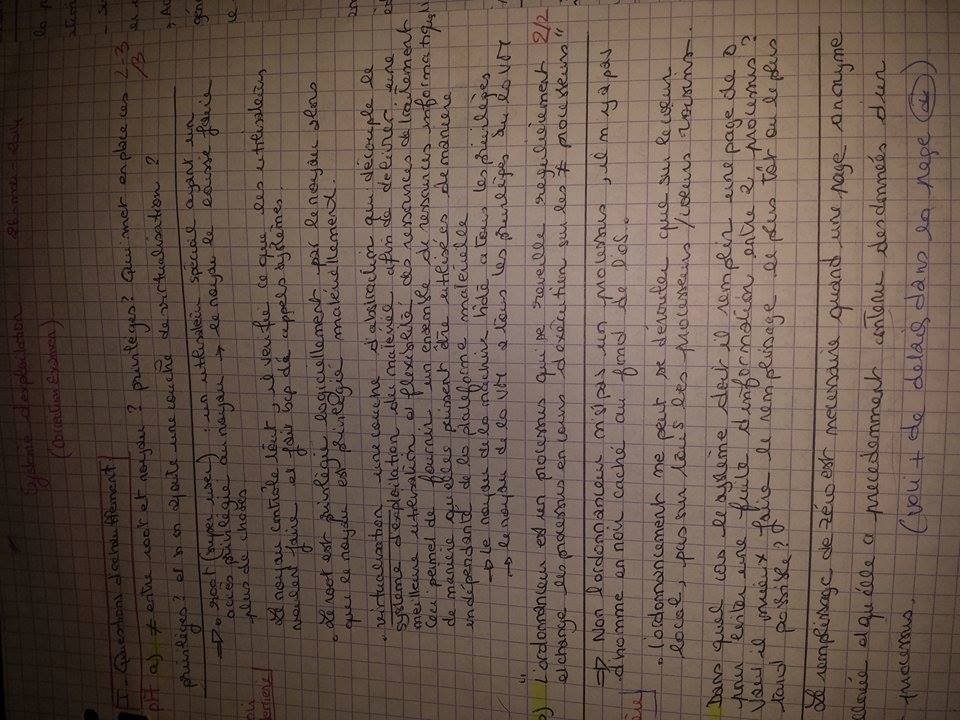 Système d'exploitation 26-mai-2014
(Correction Examen)
I - Questions d'échauffement
a) ≠ entre root et noyau ? privilèges? Qui met en place ces 2-3/3
privilèges? et si on ajoute une couche de virtualisation ?
⇒ • root (super user) : un utilisateur spécial ayant un
accès privilégié au noyau → le noyau le laisse faire
plus de choses
Le noyau contrôle tout, il verifie ce que les utilisateurs
veulent faire et fait bcp de appels systèmes.
• Le root est privilégié logiciellement par le noyau alors
que le noyau est privilégié matériellement.
• virtualisation une couche d'abstraction qui découple le
système d'exploitation du matériel afin de délivrer une
meilleure utilisation et flexibilité des ressources de traitement
Ceci permet de fournir un ensemble de ressources informatiques
de manière quelles puissent être utilisées de manière
indépendante de la plateforme matérielle
→ le noyau de la machine hôte a tous les privilèges
→ le noyau de la VM a tous les privilèges su la VM
"L'ordonnanceur est un processus qui se reveille regulièrement 2/2
et change les processus en cours d'exécution sur les ≠ processeurs"
⇒ Non l'ordonnanceur n'est pas un processus, il n'y a pas
d'homme en noir caché au fond de l'OS.
• l'ordonnancement ne peut se dérouter que sur le cœur
local, pas sur tous les processeurs / cœurs voisins.
Dans quel cas le système doit il remplir une page de 0
pour éviter une fuite d'information entre 2 processus?
Vaut il mieux faire le remplissage le plus tôt ou le plus
tard possible?
Le remplissage de zéro est necessaire quand une page anonyme
allouée et qu'elle a precedemment contenu des données d'un
processus. (Voir + de details dans la page